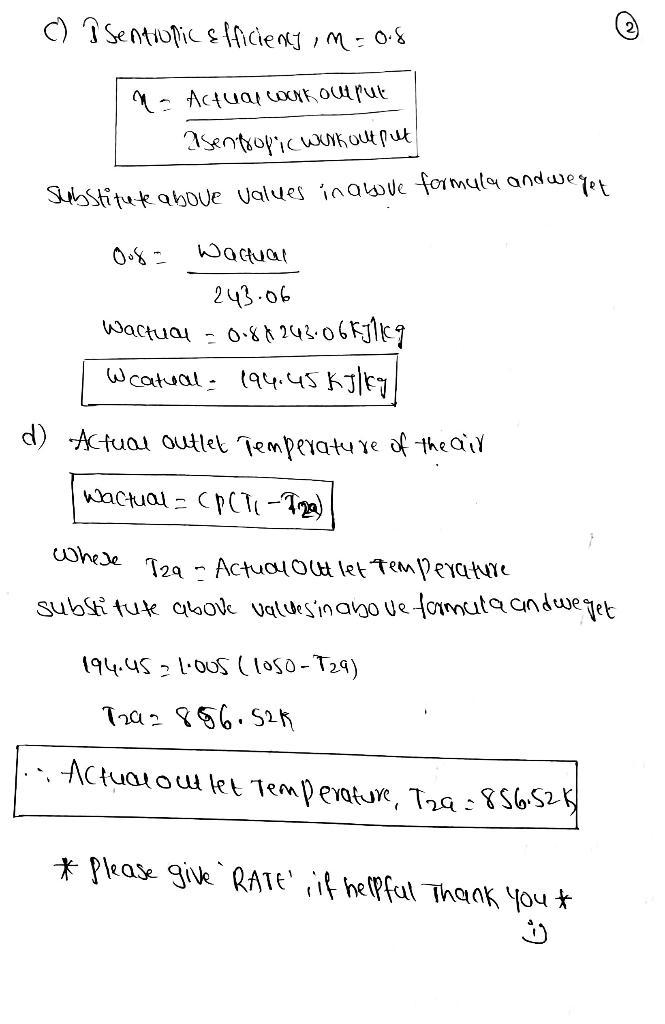 ②
c) Isentropic Efficiency, η = 0.8
η = Actual work output
Isentropic work output
Substitute above values in above formula and we get
0.8 = Wactual
243.06
Wactual = 0.8 x 243.06 KJ/kg
Wcatual = 194.45 KJ/kg
d) Actual outlet Temperature of the air
Wactual = CP(T1 - T2a)
Where T2a = Actual Outlet Temperature
substitute above values in above formula and we get
194.45 = 1.005 (1050 - T2a)
T2a = 856.52K
∴ Actual outlet Temperature, T2a = 856.52K
* Please give `RATE', if helpful Thank you *
:)